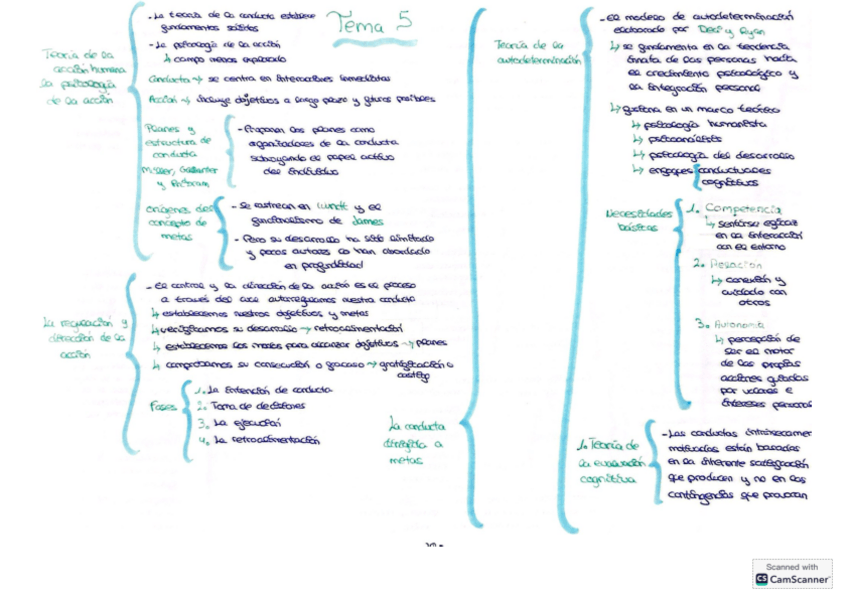 Tema 5
Teoría de la
acción humana
la psicología
de la acción
- La teoría de la conducta establece
fundamentos sólidos
- La psicología de la acción
↳ campo menos explorado
Conducta → se centra en interacciones inmediatas
Acción → incluye objetivos a largo plazo y futuros posibles
Planes y
estructura de
conducta
Miller, Gallanter
y Pribram
- Proponen los planes como
organizadores de la conducta
subrayando el papel activo
del individuo
Orígenes del
concepto de
metas
- Se rastrean en Wundt y el
funcionalismo de James
- Pero su desarrollo ha sido limitado
y pocos autores lo han abordado
en profundidad
La regulación y
dirección de la
acción
- El control y la dirección de la acción es el proceso
a través del cual autorregulamos nuestra conducta
↳ establecemos nuestros objetivos y metas
↳ verificamos su desarrollo → retroalimentación
↳ establecemos los modos para alcanzar objetivos → planes
↳ comprobamos su consecución o fracaso → gratificación o
castigo
Fases
1. La intención de conducta
2. Toma de decisiones
3. La ejecución
4. La retroalimentación
La conducta
dirigida a
metas
Teoría de la
autodeterminación
- El modelo de autodeterminación
elaborado por Deci y Ryan
↳ se fundamenta en la tendencia
innata de las personas hacia
el crecimiento psicológico y
la integración personal
↳ gestiona en un marco teórico
↳ psicología humanista
↳ psicoanálisis
↳ psicología del desarrollo
↳ enfoques conductuales
cognitivos
Necesidades
básicas
1. Competencia
↳ sentirse eficaz
en la interacción
con el entorno
2. Relación
↳ conexión y
cuidado con
otros
3. Autonomía
↳ percepción de
ser el motor
de las propias
acciones guiadas
por valores e
intereses personales
1. Teoría de
la evaluación
cognitiva
- Las conductas intrínsecamente
motivadas están basadas
en la inherente satisfacción
que producen y no en las
contingencias que provocan
Scanned with
CS CamScanner